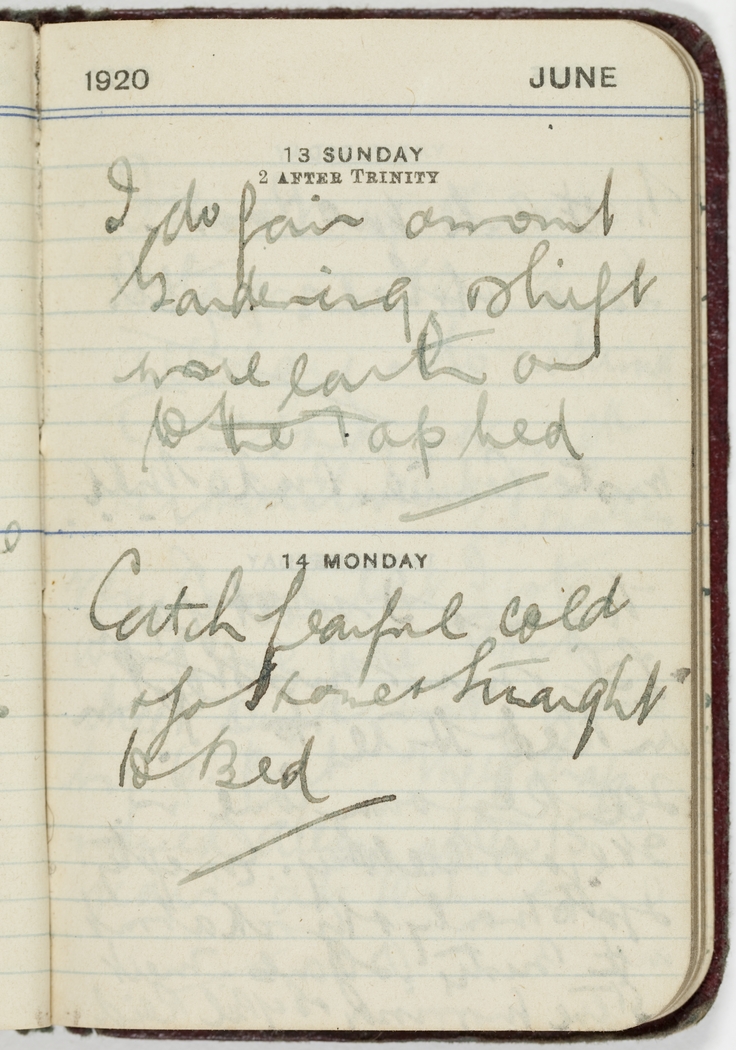 1920 JUNE
13 SUNDAY
2 AFTER TRINITY
I do fair amount
Gardening & shift
more earth on
to the Tap bed
14 MONDAY
Catch fearful cold
& go home & straight
to Bed